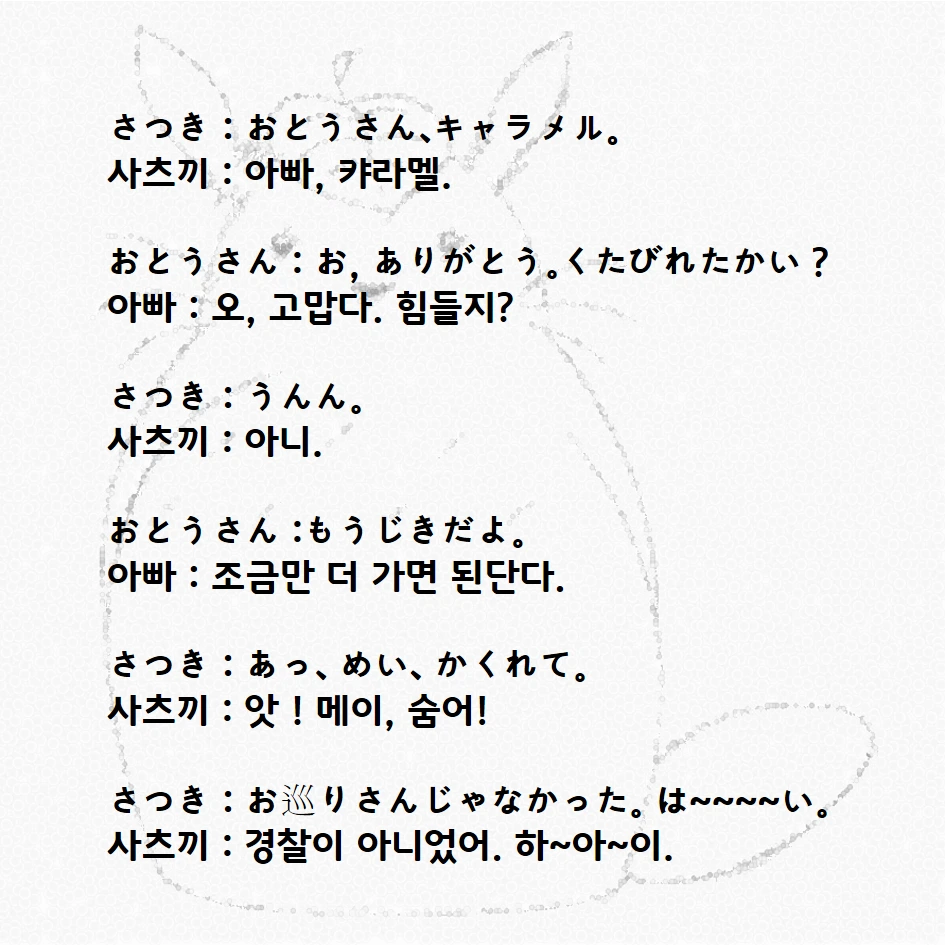 さつき : おとうさん、キャラメル。
사츠끼 : 아빠, 캬라멜.
おとうさん : お, ありがとう。くたびれたかい ?
아빠 : 오, 고맙다. 힘들지?
さつき : うんん。
사츠끼 : 아니.
おとうさん :もうじきだよ。
아빠 : 조금만 더 가면 된단다.
さつき : あっ、めい、かくれて。
사츠끼 : 앗 ! 메이, 숨어!
さつき : お巡りさんじゃなかった。は~~~~い。
사츠끼 : 경찰이 아니었어. 하~아~이.